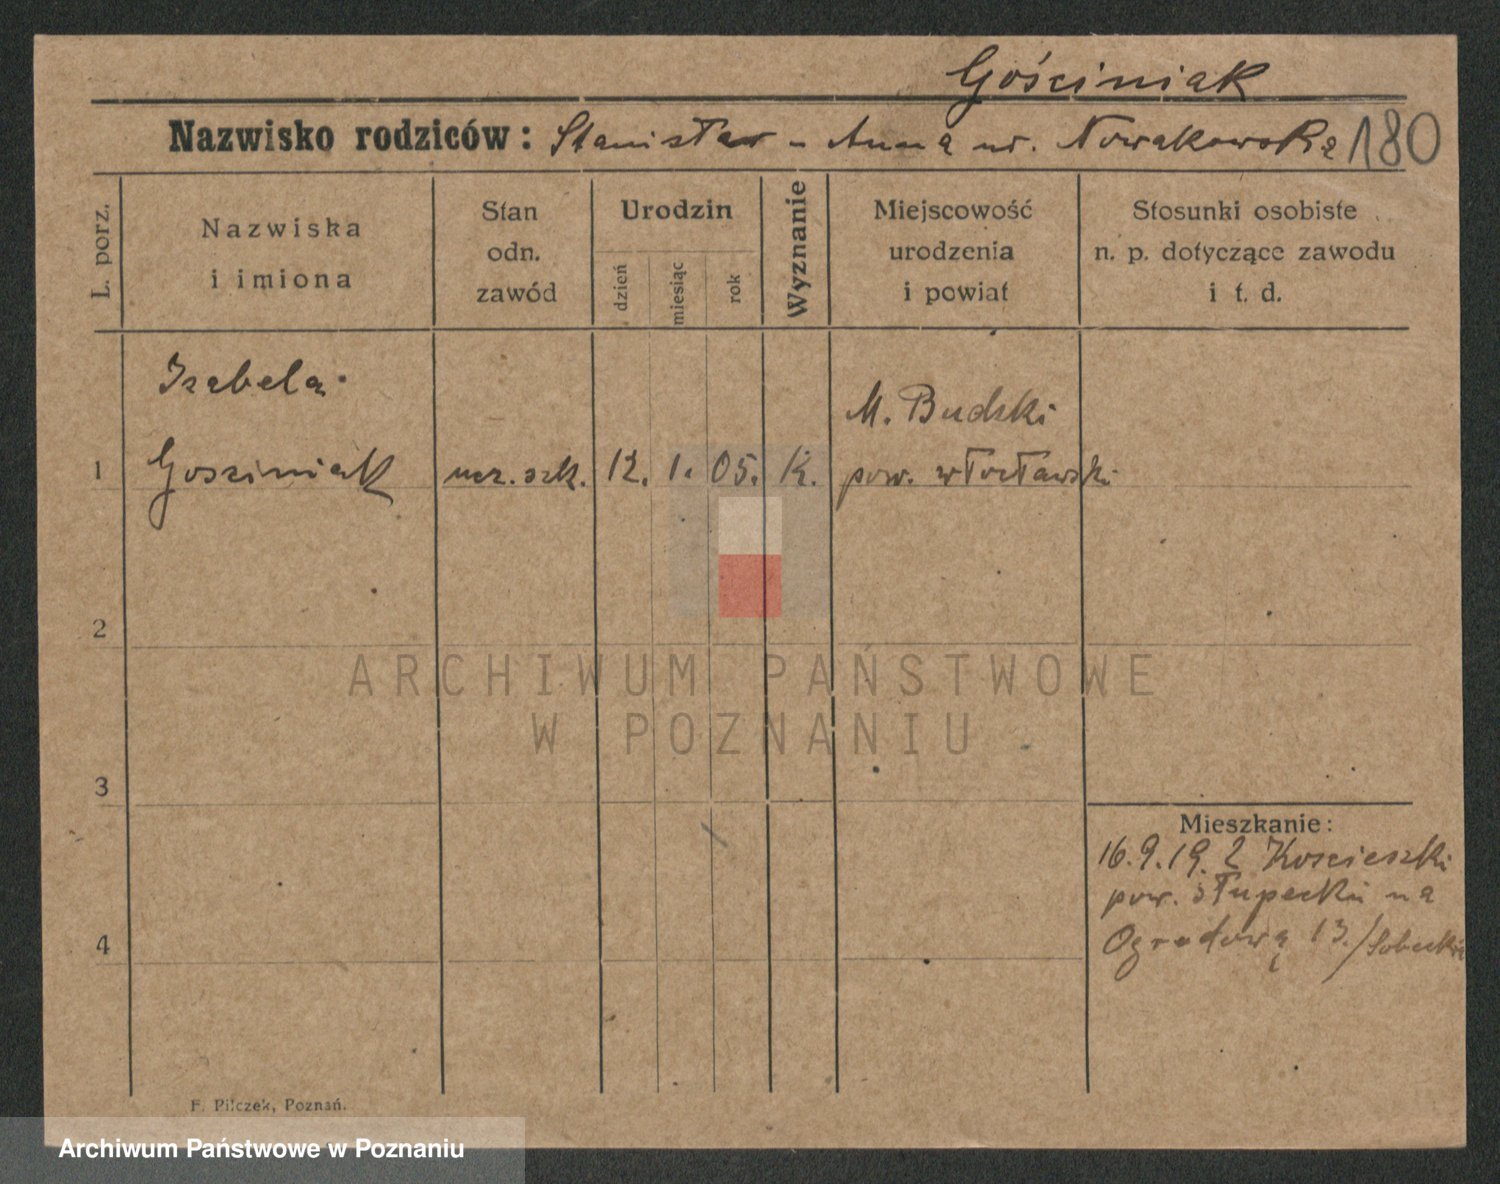 Gościniak
Nazwisko rodziców: Stanisław - Anna ur. Nowakowska 180
L. porz.
Nazwiska
i imiona
Stan
odn.
zawód
Urodzin
dzień
miesiąc
rok
Wyznanie
Miejscowość
urodzenia
i powiat
Stosunki osobiste
n. p. dotyczące zawodu
i t. d.
Izabela
M. Budzki
1 Gościniak ucz. szk. 12. 1. 05. K. pow. włocławski
2
ARCHIWUM PAŃSTWOWE
W POZNANIU
3
Mieszkanie:
16.9.19. z Koscieszki
pow. słupecki na
4 Ogrodową 13./Sobecki
F. Pilczek, Poznań.
Archiwum Państwowe w Poznaniu